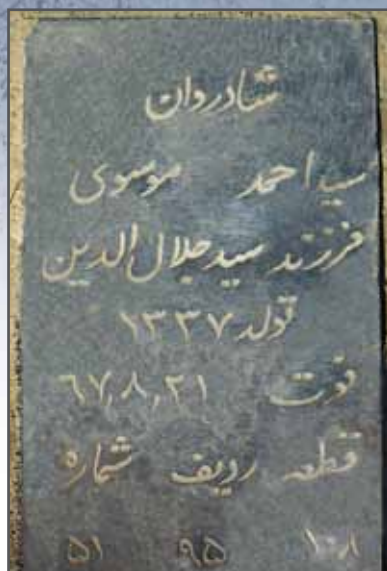 شادروان
سید احمد موسوی
فرزند سید جلال الدین
تولد ۱۳۳۷
فوت ۶۷٫۸٫۲۱
قطعه ردیف شماره
۱۰۸ ۹۵ ۵۱